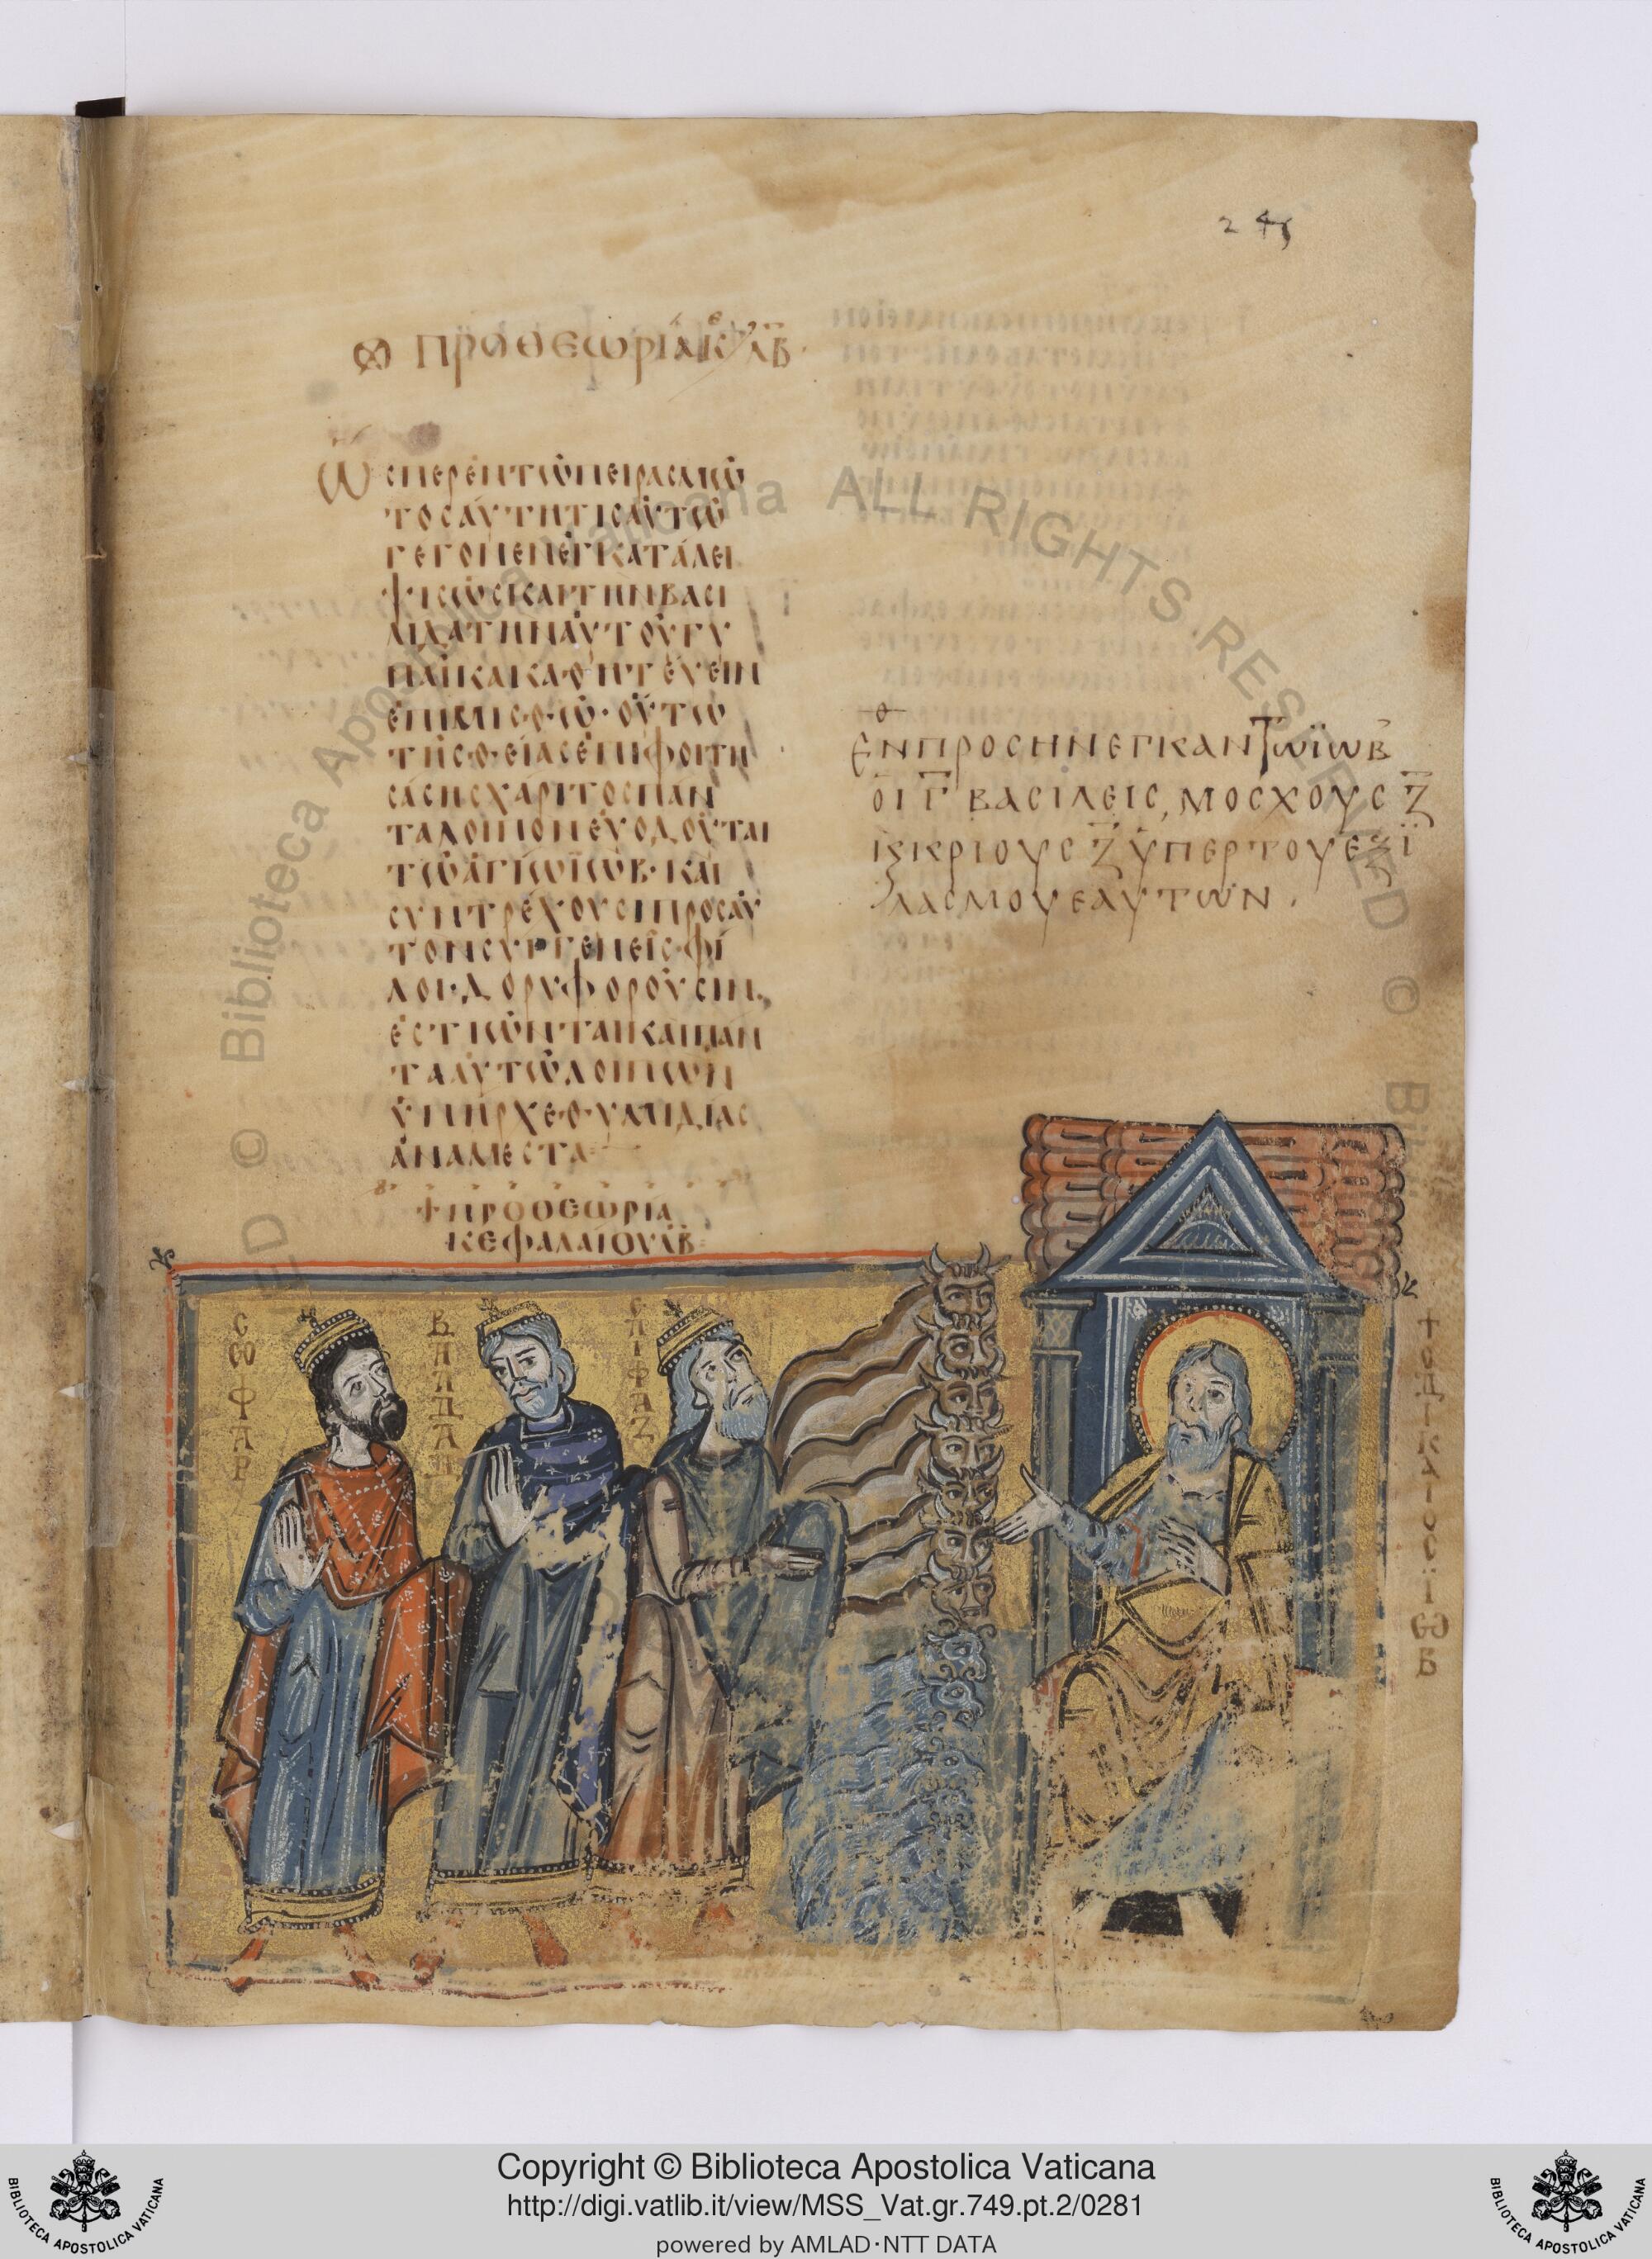 245
προθεωρία κε λβ
Ὡσπερ ἐν τῶ πειρασμῶ
τοσαύτη τισ αὐτῶ
γέγονεν ἐγκατάλει
ψισ ὡσ καὶ τὴν βασι
λίδα τὴν αὐτοῦ γυ
ναῖκα καθητεύειν
ἐπὶ μισθῶ· οὕτω
τῆσ θείασ ἐπιφοιτη
σάσησ χάριτοσ πάν
τα λοιπὸν εὐοδοῦται
τῶ ἁγίω ἰώβ· καὶ
συντρέχουσι πρὸσ αὐ
τὸν συγγενεῖσ· φί
λοι· δορυφοροῦσιν·
ἑστιῶνται καὶ πάν
τα αὐτῶ λοιπὸν
ὑπῆρχε θυμηδίασ
ἀνάμεστα
προθεωρία
κεφαλαίου λβ
ΕΝ ΠΡΟCΗΝΕΓΚΑΝ Τω ϊωΒ
ΟΙ Γ ΒΑCΙΛΕΙC, ΜΟCΧΟΥC Ζ
Κ ΚΡΙΟΥC Ζ ΥΠΕΡ ΤΟΥ ΕΞΙ
ΛΑCΜΟΥ ΕΑΥΤωΝ.
CωΦΑΡ
ΒΑΛΔΑΔ
ΕΛΙΦΑΖ
+ Ο ΔΙΚΑΙΟC ΙωΒ
Biblioteca Apostolica Vaticana ALL RIGHTS RESERVED ©
Copyright © Biblioteca Apostolica Vaticana
http://digi.vatlib.it/view/MSS_Vat.gr.749.pt.2/0281
powered by AMLAD·NTT DATA
BIBLIOTECA APOSTOLICA VATICANA
BIBLIOTECA APOSTOLICA VATICANA